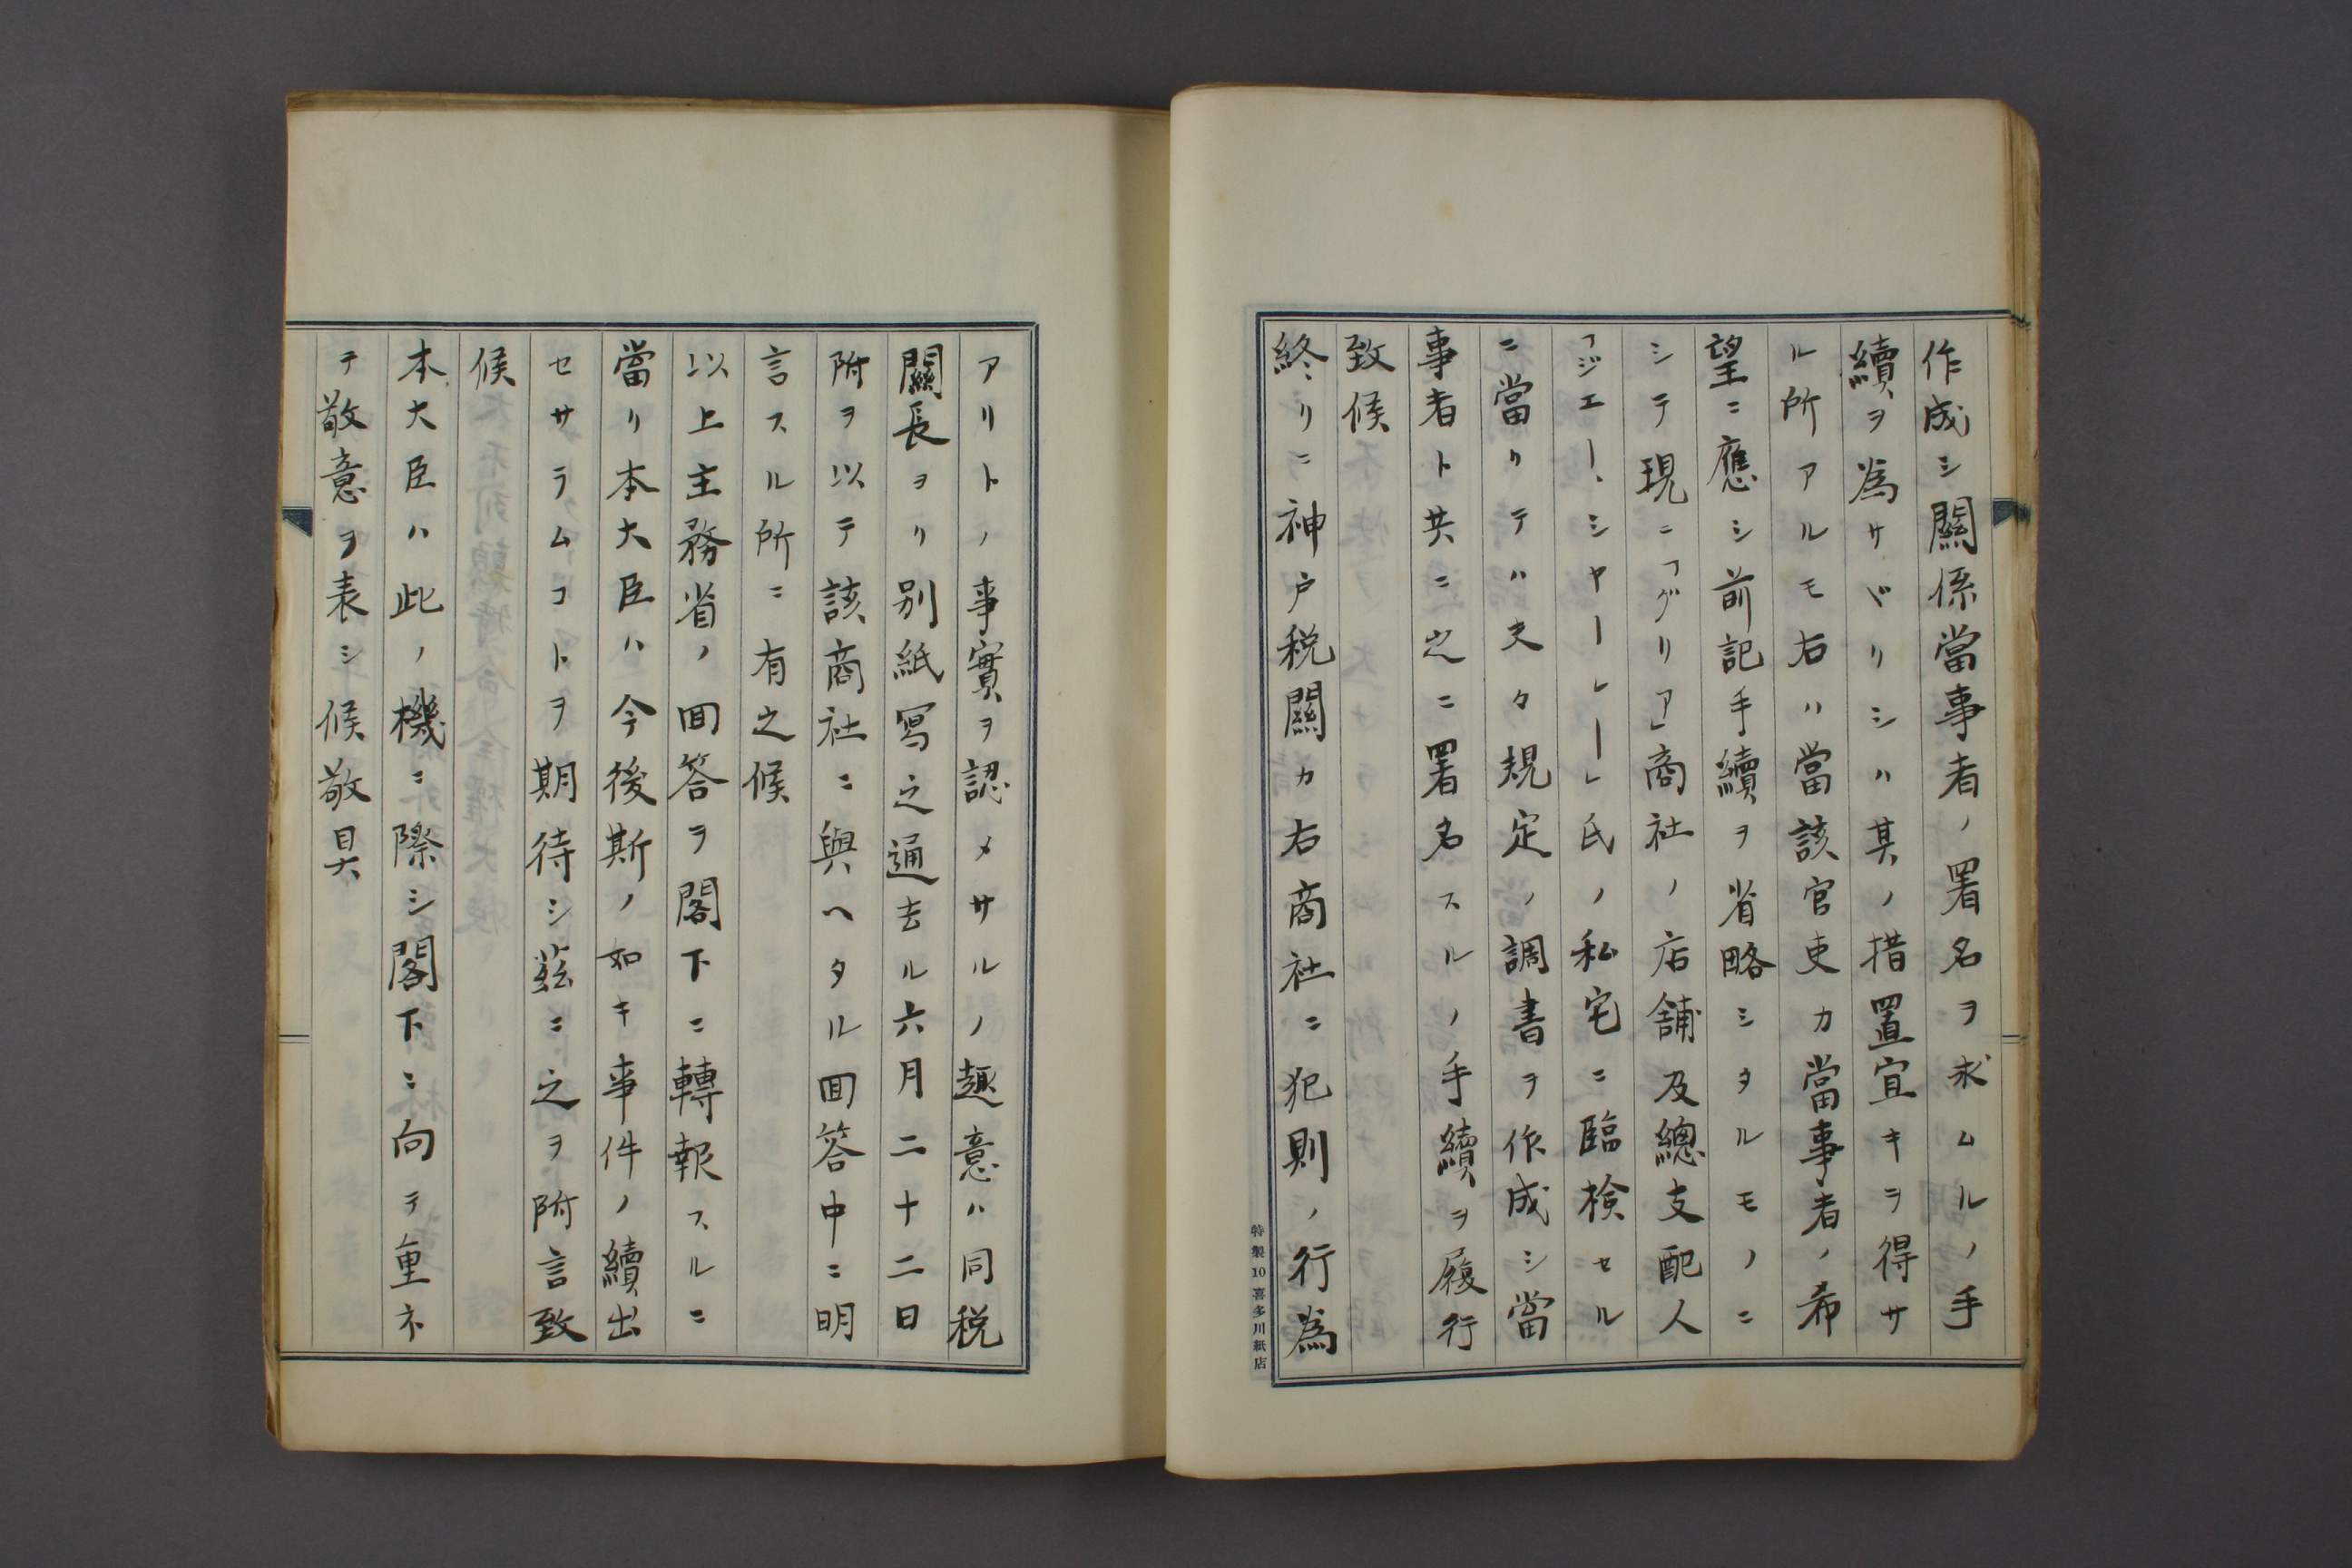 作成シ關係當事者ノ署名ヲ求ムルノ手
續ヲ為サヾリシハ其ノ措置宜キヲ得サ
ル所アルモ右ハ當該官吏カ當事者ノ希
望ニ應シ前記手續ヲ省略シタルモノニ
シテ現ニ「グリア」商社ノ店舗及總支配人
「ジエー、シヤーレー」氏ノ私宅ニ臨検セル
ニ當リテハ夫々規定ノ調書ヲ作成シ當
事者ト共ニ之ニ署名スルノ手續ヲ履行
致候
終リニ神戸税關カ右商社ニ犯則ノ行為
特製10喜多川紙店
アリトノ事實ヲ認メサルノ趣意ハ同税
關長ヨリ別紙寫之通去ル六月二十二日
附ヲ以テ該商社ニ與ヘタル囬答中ニ明
言スル所ニ有之候
以上主務省ノ囬答ヲ閣下ニ轉報スルニ
當リ本大臣ハ今後斯ノ如キ事件ノ續出
セサラムコトヲ期待シ茲ニ之ヲ附言致
候
本大臣ハ此ノ機ニ際シ閣下ニ向テ重ネ
テ敬意ヲ表シ候敬具